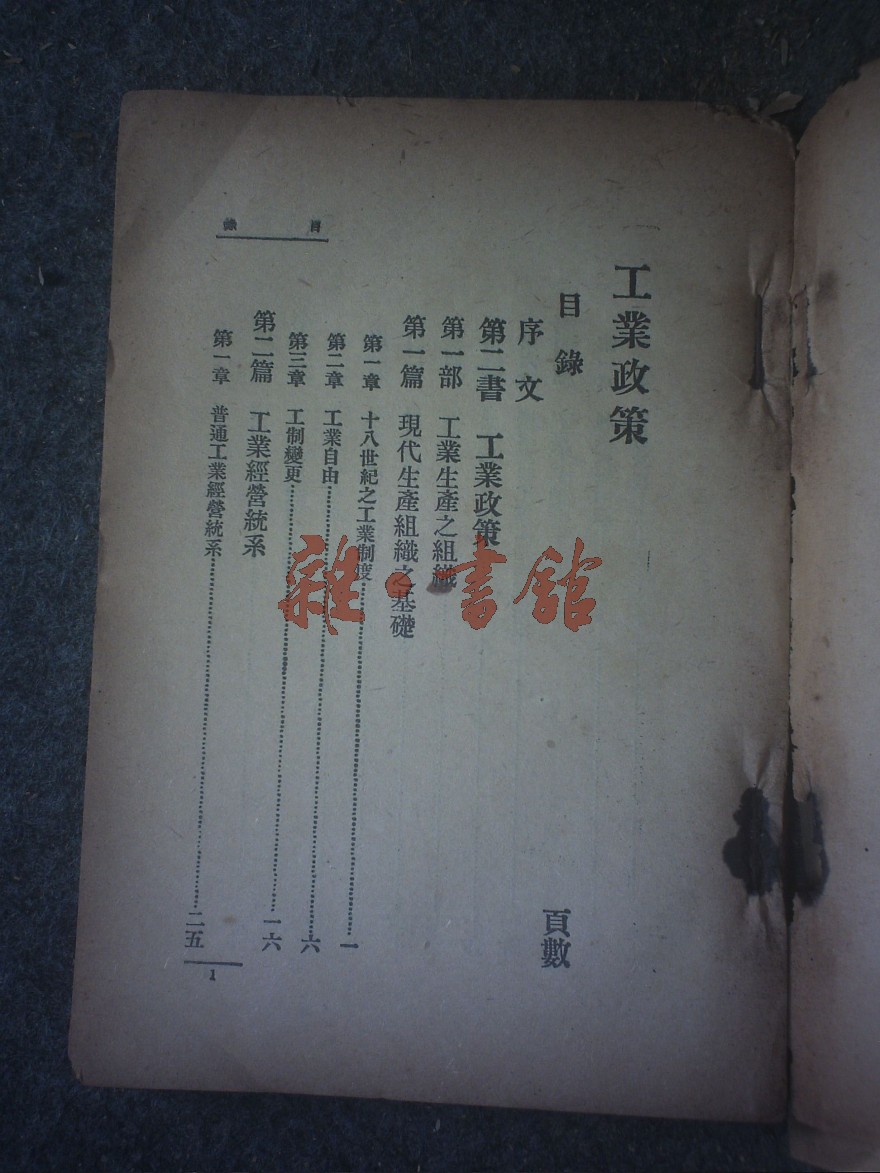 工業政策
目錄
頁數
序文
第二書 工業政策
第一部 工業生產之組織
第一篇 現代生產組織之基礎
第一章 十八世紀之工業制度…………一
第二章 工業自由…………六
第三章 工制變更…………一六
第二篇 工業經營統系
第一章 普通工業經營統系…………二五
目錄
1
雜·書館